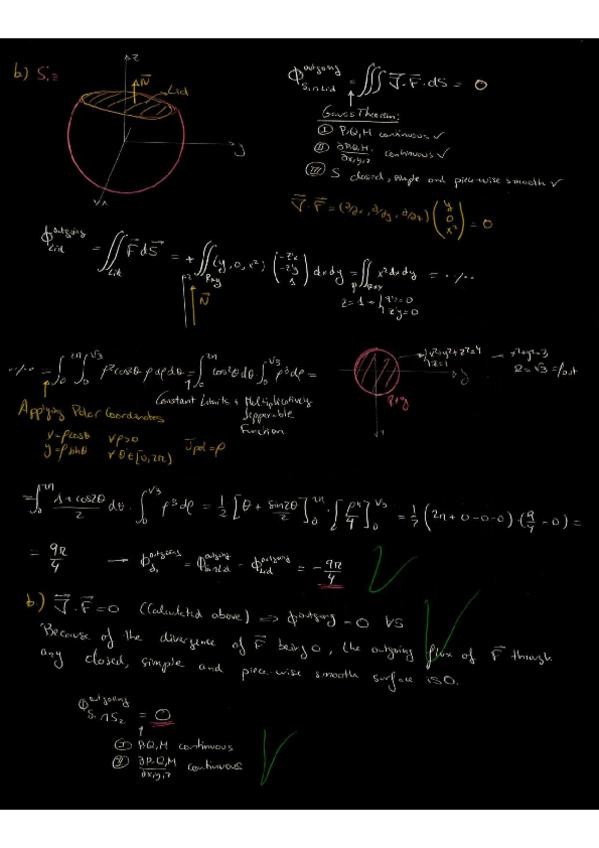 b) S₁:
z
N⃗
Lid
y
x
Φ outgoing S₁∩Lid = ∭ ∇⃗·F⃗·dS = 0
Gauss Theorem:
Ⅰ P,Q,M continuous ✓
Ⅱ ∂P,Q,M/∂x,y,z continuous ✓
Ⅲ S closed, simple and piece-wise smooth ✓
∇⃗·F⃗ = (∂/∂x, ∂/∂y, ∂/∂z) (y 0 x²) = 0
Φ outgoing Lid = ∬ Lid F⃗ dS⃗ = + ∬ Rxy (y, 0, x²) (-z'x -z'y 1) dxdy = ∬ Rxy x² dxdy = ·/··
z = 1 → z'x = 0 z'y = 0
N⃗
·/·· = ∫₀^2π ∫₀^√3 ρ² cos²θ ρ dρ dθ = ∫₀^2π cos²θ dθ ∫₀^√3 ρ³ dρ =
x²+y²+z²=4 z=1 → x²+y²=3
R = √3
y
Rxy
Applying Polar Coordinates
Constant Limits + Multiplicatively
Function
x = ρcosθ ∀ρ>0
y = ρsinθ ∀θ∈[0,2π) Jpol = ρ
= ∫₀^2π 1+cos2θ/2 dθ · ∫₀^√3 ρ³ dρ = 1/2 [θ + sin2θ/2]₀^2π · [ρ⁴/4]₀^√3 = 1/2 (2π + 0 - 0 - 0) · (9/4 - 0) =
= 9π/4 → Φ outgoing S₁ = Φ outgoing S₁∩Lid - Φ outgoing Lid = - 9π/4
b.) ∇⃗·F⃗ = 0 (Calculated above) ⇒ Φ outgoing = 0 ∀S
Because of the divergence of F⃗ being 0, the outgoing flux of F⃗ through
any closed, simple and piece-wise smooth surface is 0.
Φ outgoing S₁∩S₂ = 0
Ⅰ P,Q,M continuous
Ⅱ ∂P,Q,M/∂x,y,z continuous